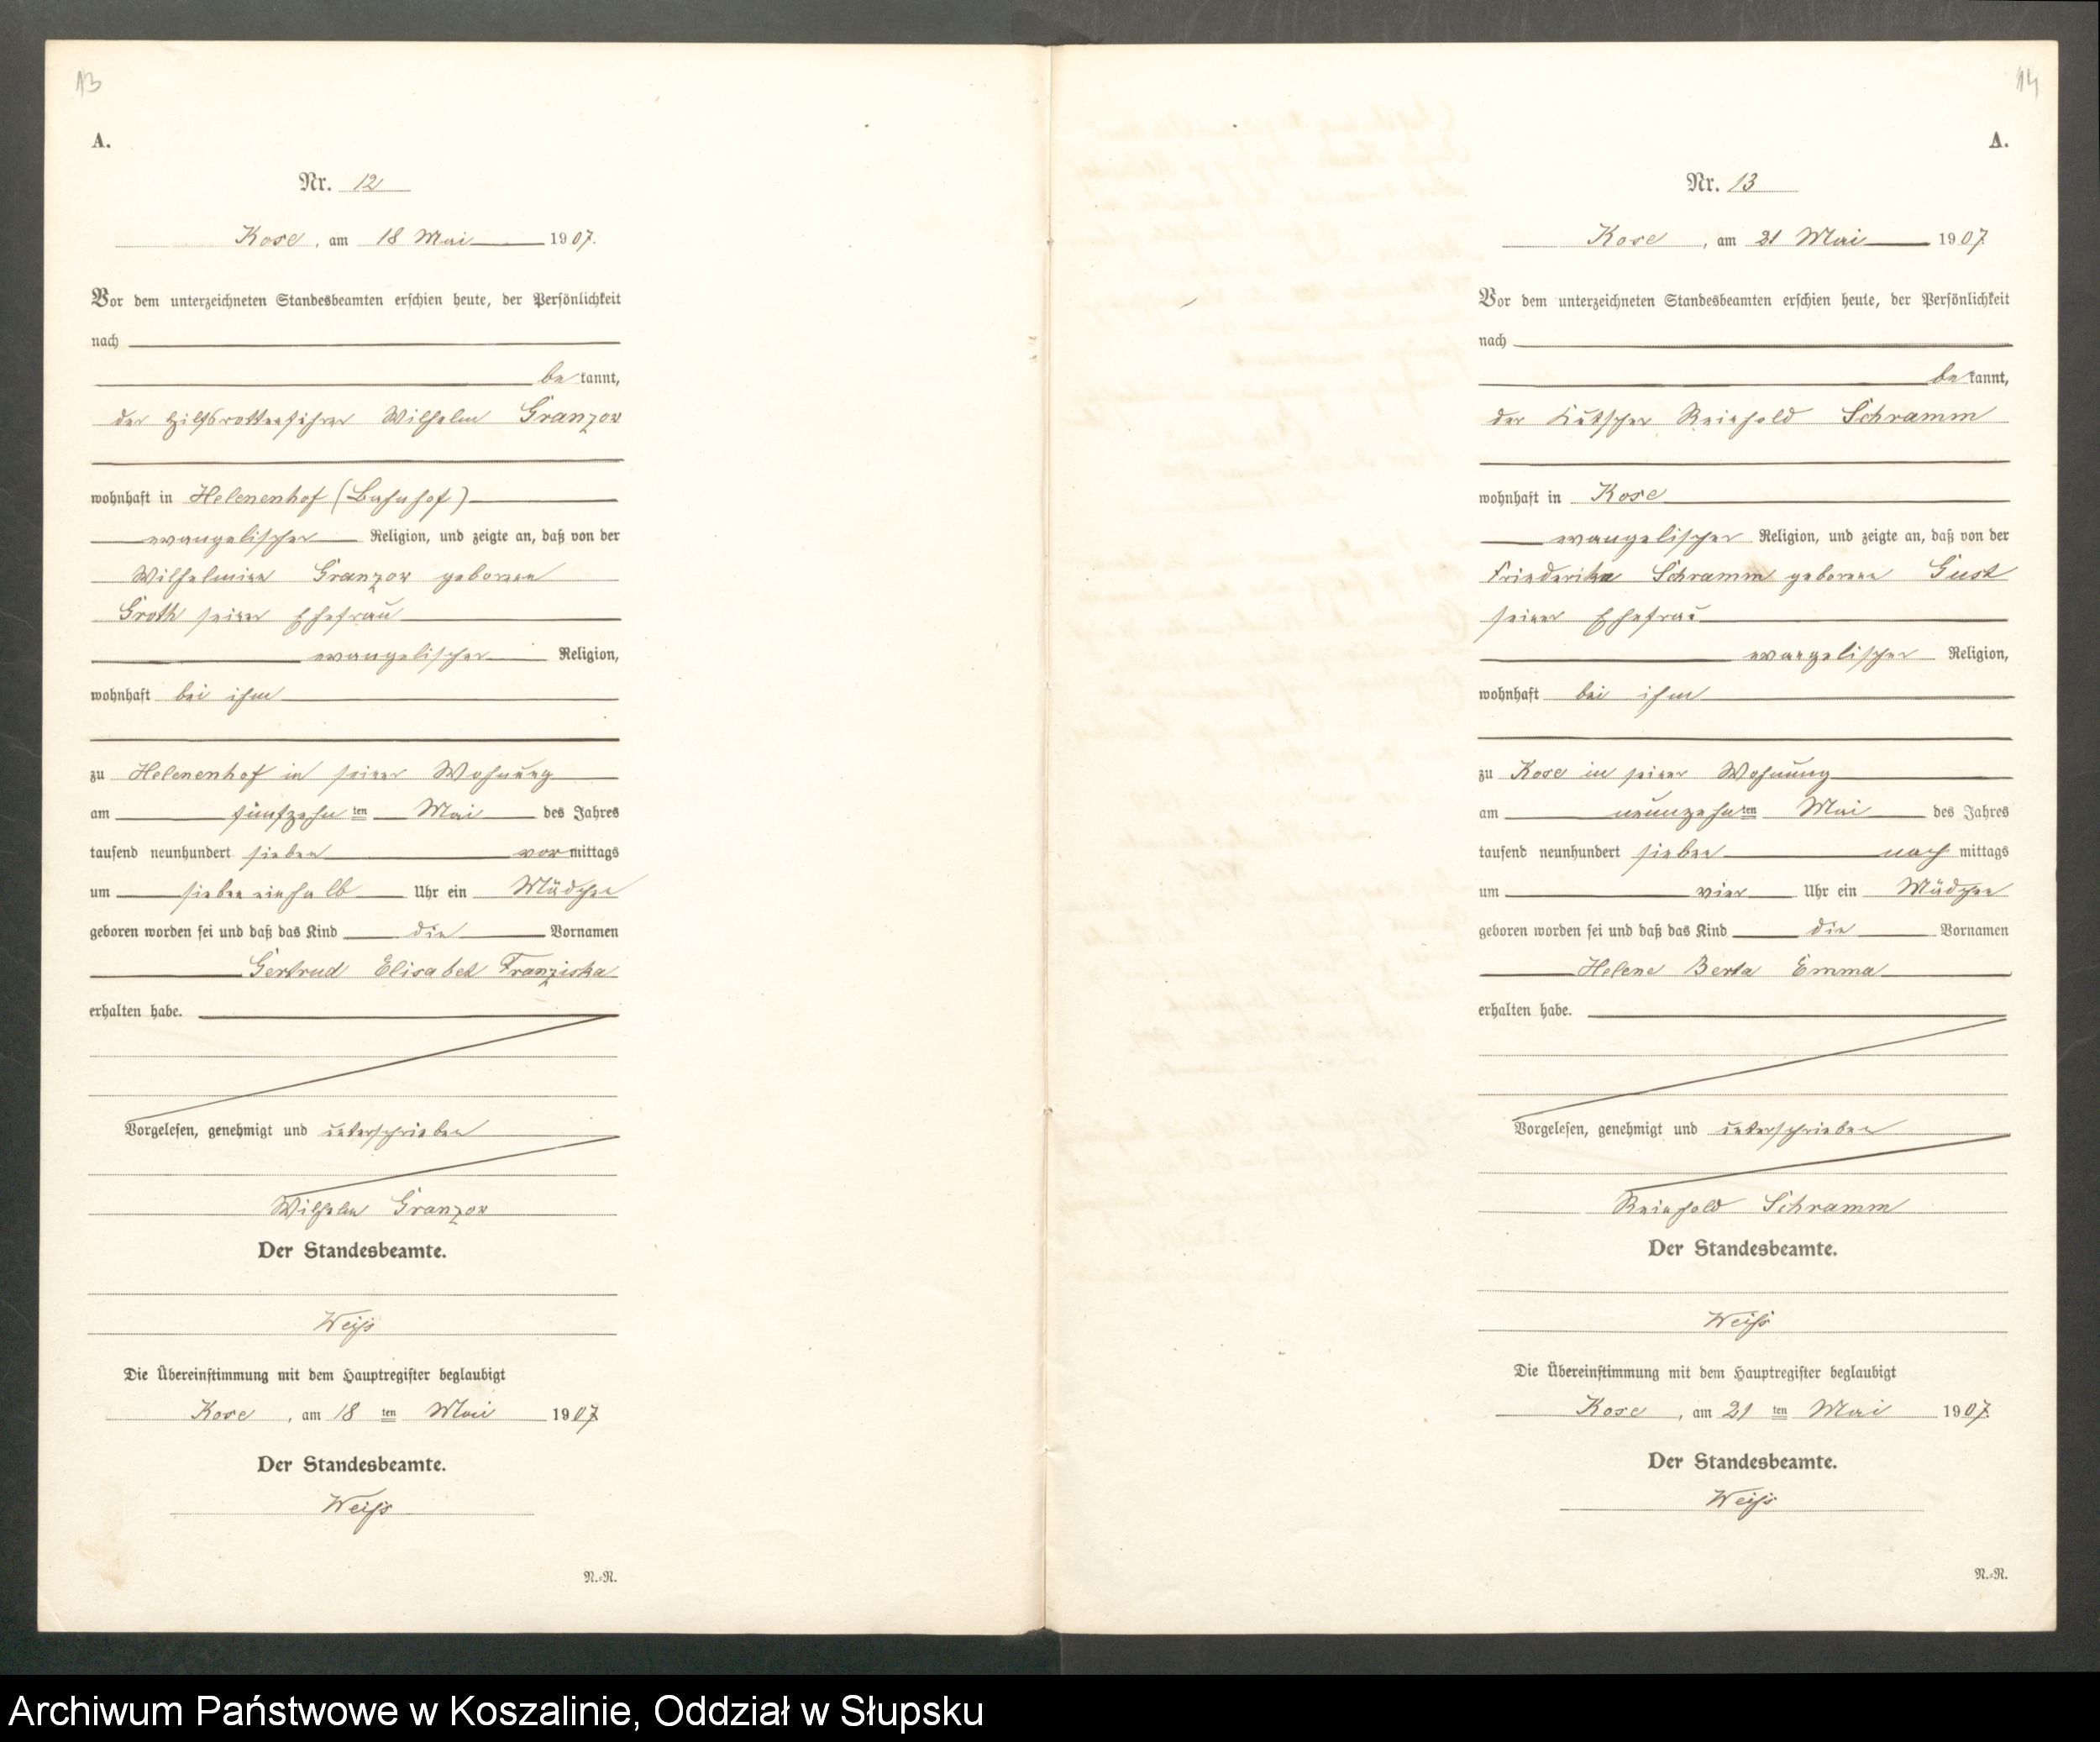 13
A.
Nr. 12
Kose, am 18 Mai 1907.
Vor dem unterzeichneten Standesbeamten erschien heute, der Persönlichkeit
nach
bekannt,
der Hilfsrottenführer Wilhelm Granzow
wohnhaft in Helenenhof (Bahnhof)
evangelischer Religion, und zeigte an, daß von der
Wilhelmine Granzow geborene
Groth seiner Ehefrau
evangelischer Religion,
wohnhaft bei ihm
zu Helenenhof in seiner Wohnung
am fünfzehnten Mai des Jahres
tausend neunhundert sieben vormittags
um sieben einhalb Uhr ein Mädchen
geboren worden sei und daß das Kind die Vornamen
Gertrud Elisabet Franziska
erhalten habe.
Vorgelesen, genehmigt und unterschrieben
Wilhelm Granzow
Der Standesbeamte.
Weiß
Die Übereinstimmung mit dem Hauptregister beglaubigt
Kose, am 18 ten Mai 1907
Der Standesbeamte.
Weiß
N.=N.
14
A.
Nr. 13
Kose, am 21 Mai 1907
Vor dem unterzeichneten Standesbeamten erschien heute, der Persönlichkeit
nach
bekannt,
der Kutscher Reinhold Schramm
wohnhaft in Kose
evangelischer Religion, und zeigte an, daß von der
Friederike Schramm geborene Gust
seiner Ehefrau
evangelischer Religion,
wohnhaft bei ihm
zu Kose in seiner Wohnung
am neunzehnten Mai des Jahres
tausend neunhundert sieben nachmittags
um vier Uhr ein Mädchen
geboren worden sei und daß das Kind die Vornamen
Helene Berta Emma
erhalten habe.
Vorgelesen, genehmigt und unterschrieben
Reinhold Schramm
Der Standesbeamte.
Weiß
Die Übereinstimmung mit dem Hauptregister beglaubigt
Kose, am 21 ten Mai 1907.
Der Standesbeamte.
Weiß
N.=N.
Archiwum Państwowe w Koszalinie, Oddział w Słupsku